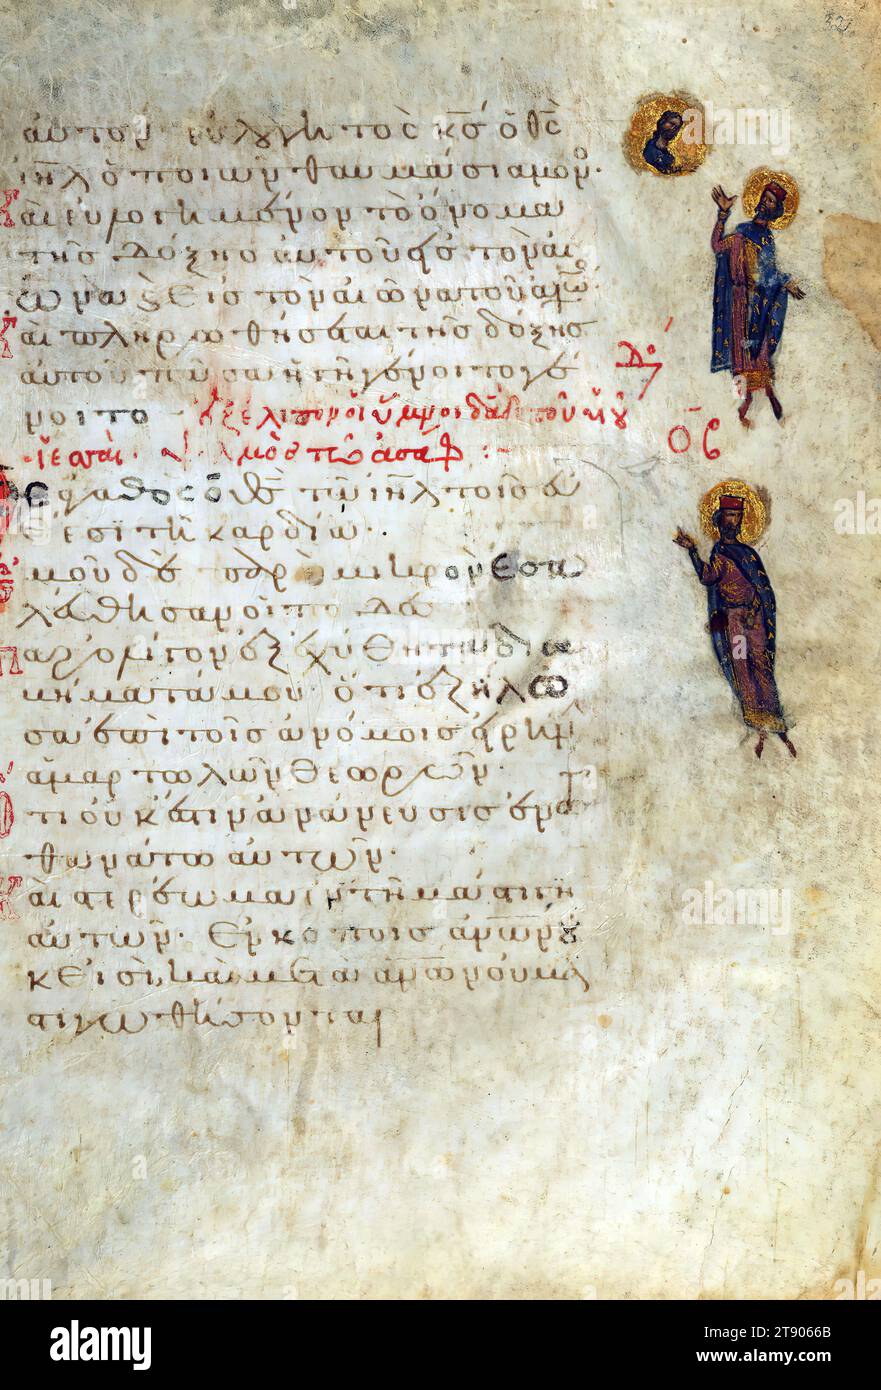 αυτόν· ευλογητὸς κ̅ς̅ ὁ θ̅ς̅
ι̅η̅λ̅ ὁ ποιῶν θαυμάσια μόνος·
Καὶ ευλογημένον τὸ ὄνομα
τῆς δόξης αυτοῦ εἰς τὸν αἰ
ῶνα ϗ εἰς τὸν αἰῶνα τοῦ αἰῶνος
Καὶ πληρωθήσεται τῆς δόξης
αυτοῦ πᾶσα ἡ γῆ γένοιτο γέ
νοιτο
ἐξέλιπον οἱ ὕμνοι δα̅δ̅ τοῦ υἱοῦ
ἰεσσαί· ψαλμὸς τῶ ἀσάφ :-
ο̅β̅
Ὡς ἀγαθὸς ὁ θ̅ς̅ τῶ ι̅η̅λ̅ τοῖς ευ
θέσι τῆ καρδία·
Ἐμοῦ δὲ παρὰ μικρὸν ἐσα
λεύθησαν οἱ πόδες
Παρ' ὀλίγον ἐξεχύθη τὰ δια
βήματά μου· ὅτι ἐζήλω
σα ἐπὶ τοῖς ἀνόμοις εἰρήνην
ἁμαρτωλῶν θεωρῶν·
Ὅτι οὐκ ἔστιν ἀνάνευσις ἐν τῶ
θανάτω αυτῶν·
Καὶ στερέωμα ἐν τῆ μάστιγι
αυτῶν· Ἐν κόποις ἀν̅ω̅ν̅ οὐ
κ εἰσὶ, καὶ μετὰ ἀν̅ω̅ν̅ οὐ μα
στιγωθήσονται
alamy
alamy
Image ID: 2T9066B
www.alamy.com